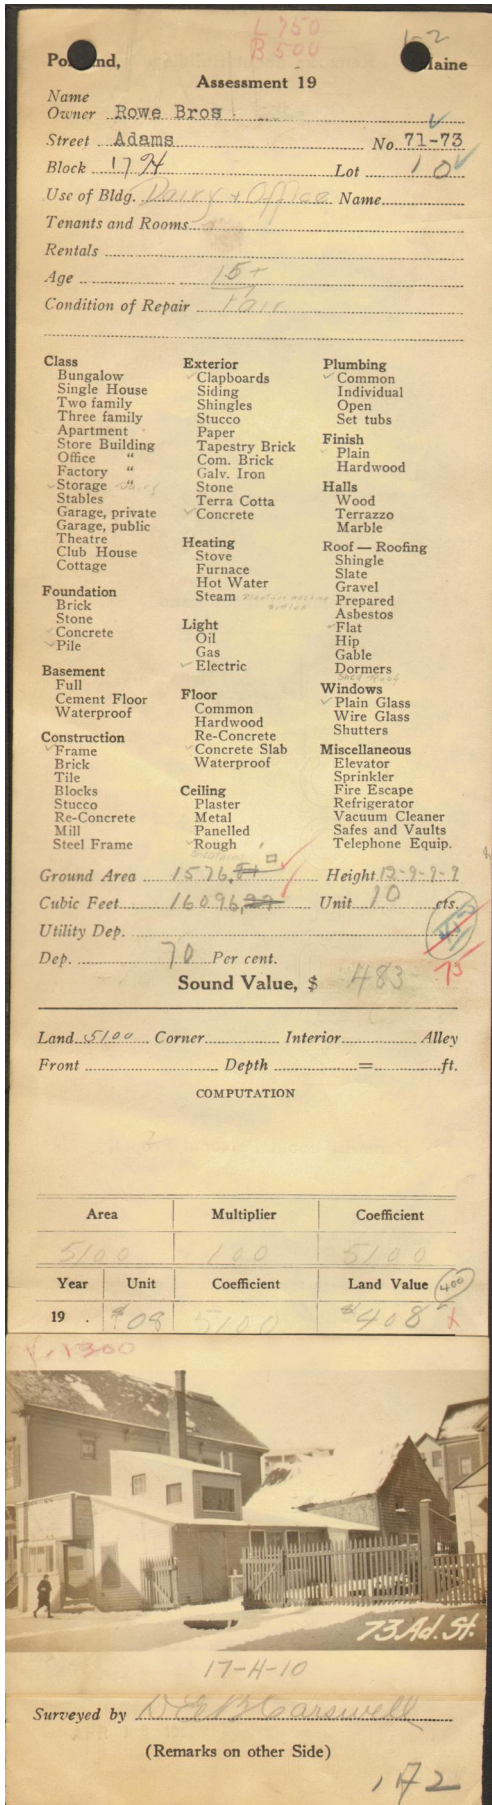 L 750
B 500
1-2
Portland, Maine
Assessment 19
Name
Owner Rowe Bros.
Street Adams No. 71-73
Block 17 H Lot 10
Use of Bldg. Dairy + Office Name
Tenants and Rooms
Rentals
Age 15+
Condition of Repair Fair
Class
Bungalow
Single House
Two family
Three family
Apartment
Store Building
Office "
Factory "
Storage "
Stables
Garage, private
Garage, public
Theatre
Club House
Cottage
Foundation
Brick
Stone
Concrete
Pile
Basement
Full
Cement Floor
Waterproof
Construction
Frame
Brick
Tile
Blocks
Stucco
Re-Concrete
Mill
Steel Frame
Exterior
Clapboards
Siding
Shingles
Stucco
Paper
Tapestry Brick
Com. Brick
Galv. Iron
Stone
Terra Cotta
Concrete
Heating
Stove
Furnace
Hot Water
Steam
Light
Oil
Gas
Electric
Floor
Common
Hardwood
Re-Concrete
Concrete Slab
Waterproof
Ceiling
Plaster
Metal
Panelled
Rough
Plumbing
Common
Individual
Open
Set tubs
Finish
Plain
Hardwood
Halls
Wood
Terrazzo
Marble
Roof — Roofing
Shingle
Slate
Gravel
Prepared
Asbestos
Flat
Hip
Gable
Dormers
Shed Roof
Windows
Plain Glass
Wire Glass
Shutters
Miscellaneous
Elevator
Sprinkler
Fire Escape
Refrigerator
Vacuum Cleaner
Safes and Vaults
Telephone Equip.
Ground Area 1576 Height 12-9-9-9
Cubic Feet 16096 Unit 10 cts.
Utility Dep.
Dep. 70 Per cent.
75
Sound Value, $ 483
Land 5100 Corner Interior Alley
Front Depth = ft.
COMPUTATION
Area Multiplier Coefficient
5100 100 5100
Year Unit Coefficient Land Value 400
19 . $.08 5100 $408
1300
73 Ad. St.
17-H-10
Surveyed by Carswell
(Remarks on other Side)
172